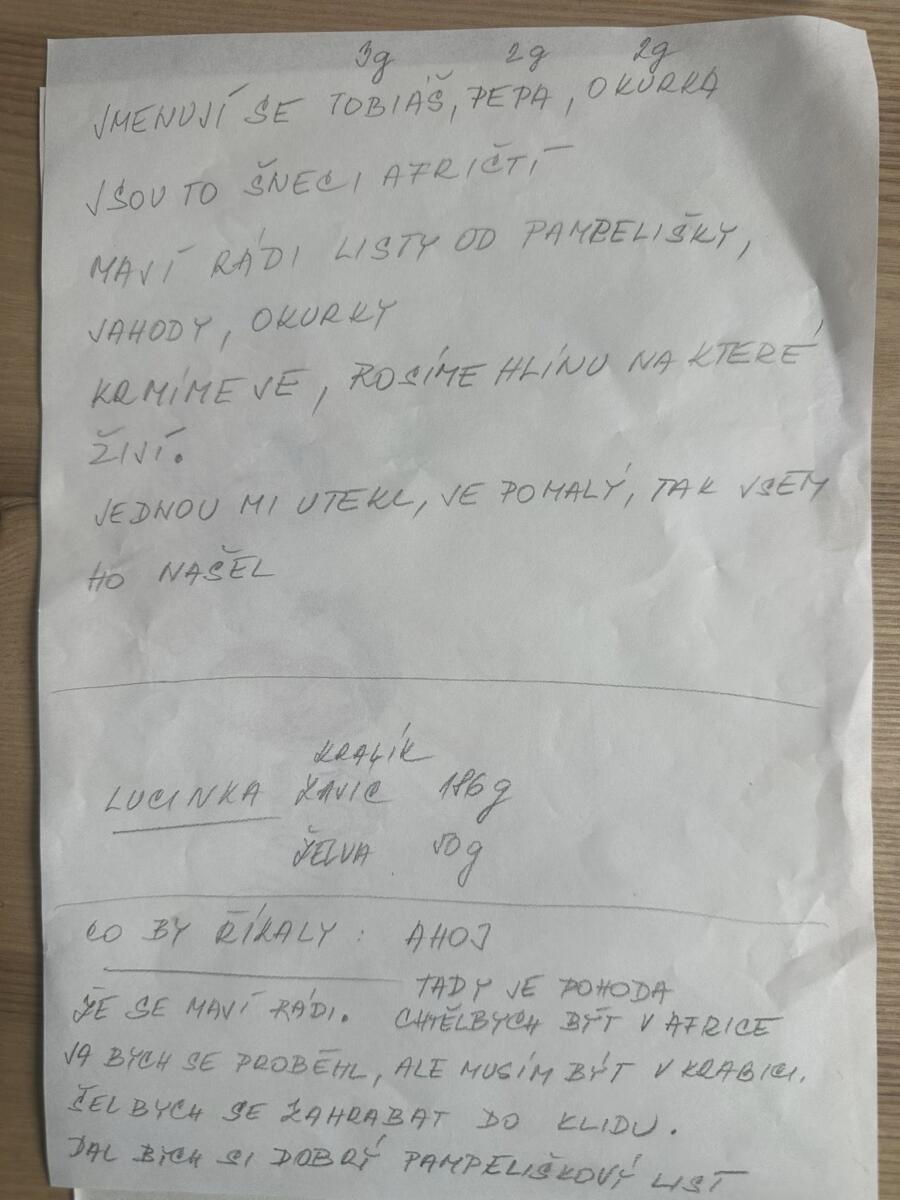 3g 2g 2g
JMENUJÍ SE TOBIÁŠ, PEPA, OKURKA
JSOU TO ŠNECI AFRIČTÍ
MAJÍ RÁDI LISTY OD PAMPELIŠKY,
JAHODY, OKURKY
KRMÍME JE, ROSÍME HLÍNU NA KTERÉ
ŽIJÍ.
JEDNOU MI UTEKL, JE POMALÝ, TAK JSEM
HO NAŠEL
KRALÍK
LUCINKA ZAJIC 186g
ŽELVA 50g
CO BY ŘÍKALY : AHOJ
TADY JE POHODA
ŽE SE MAJÍ RÁDI. CHTĚLBYCH BÝT V AFRICE
JA BYCH SE PROBĚHL, ALE MUSÍM BÝT V KRABICI.
ŠEL BYCH SE ZAHRABAT DO KLIDU.
DAL BYCH SI DOBRÝ PAMPELIŠKOVÝ LIST